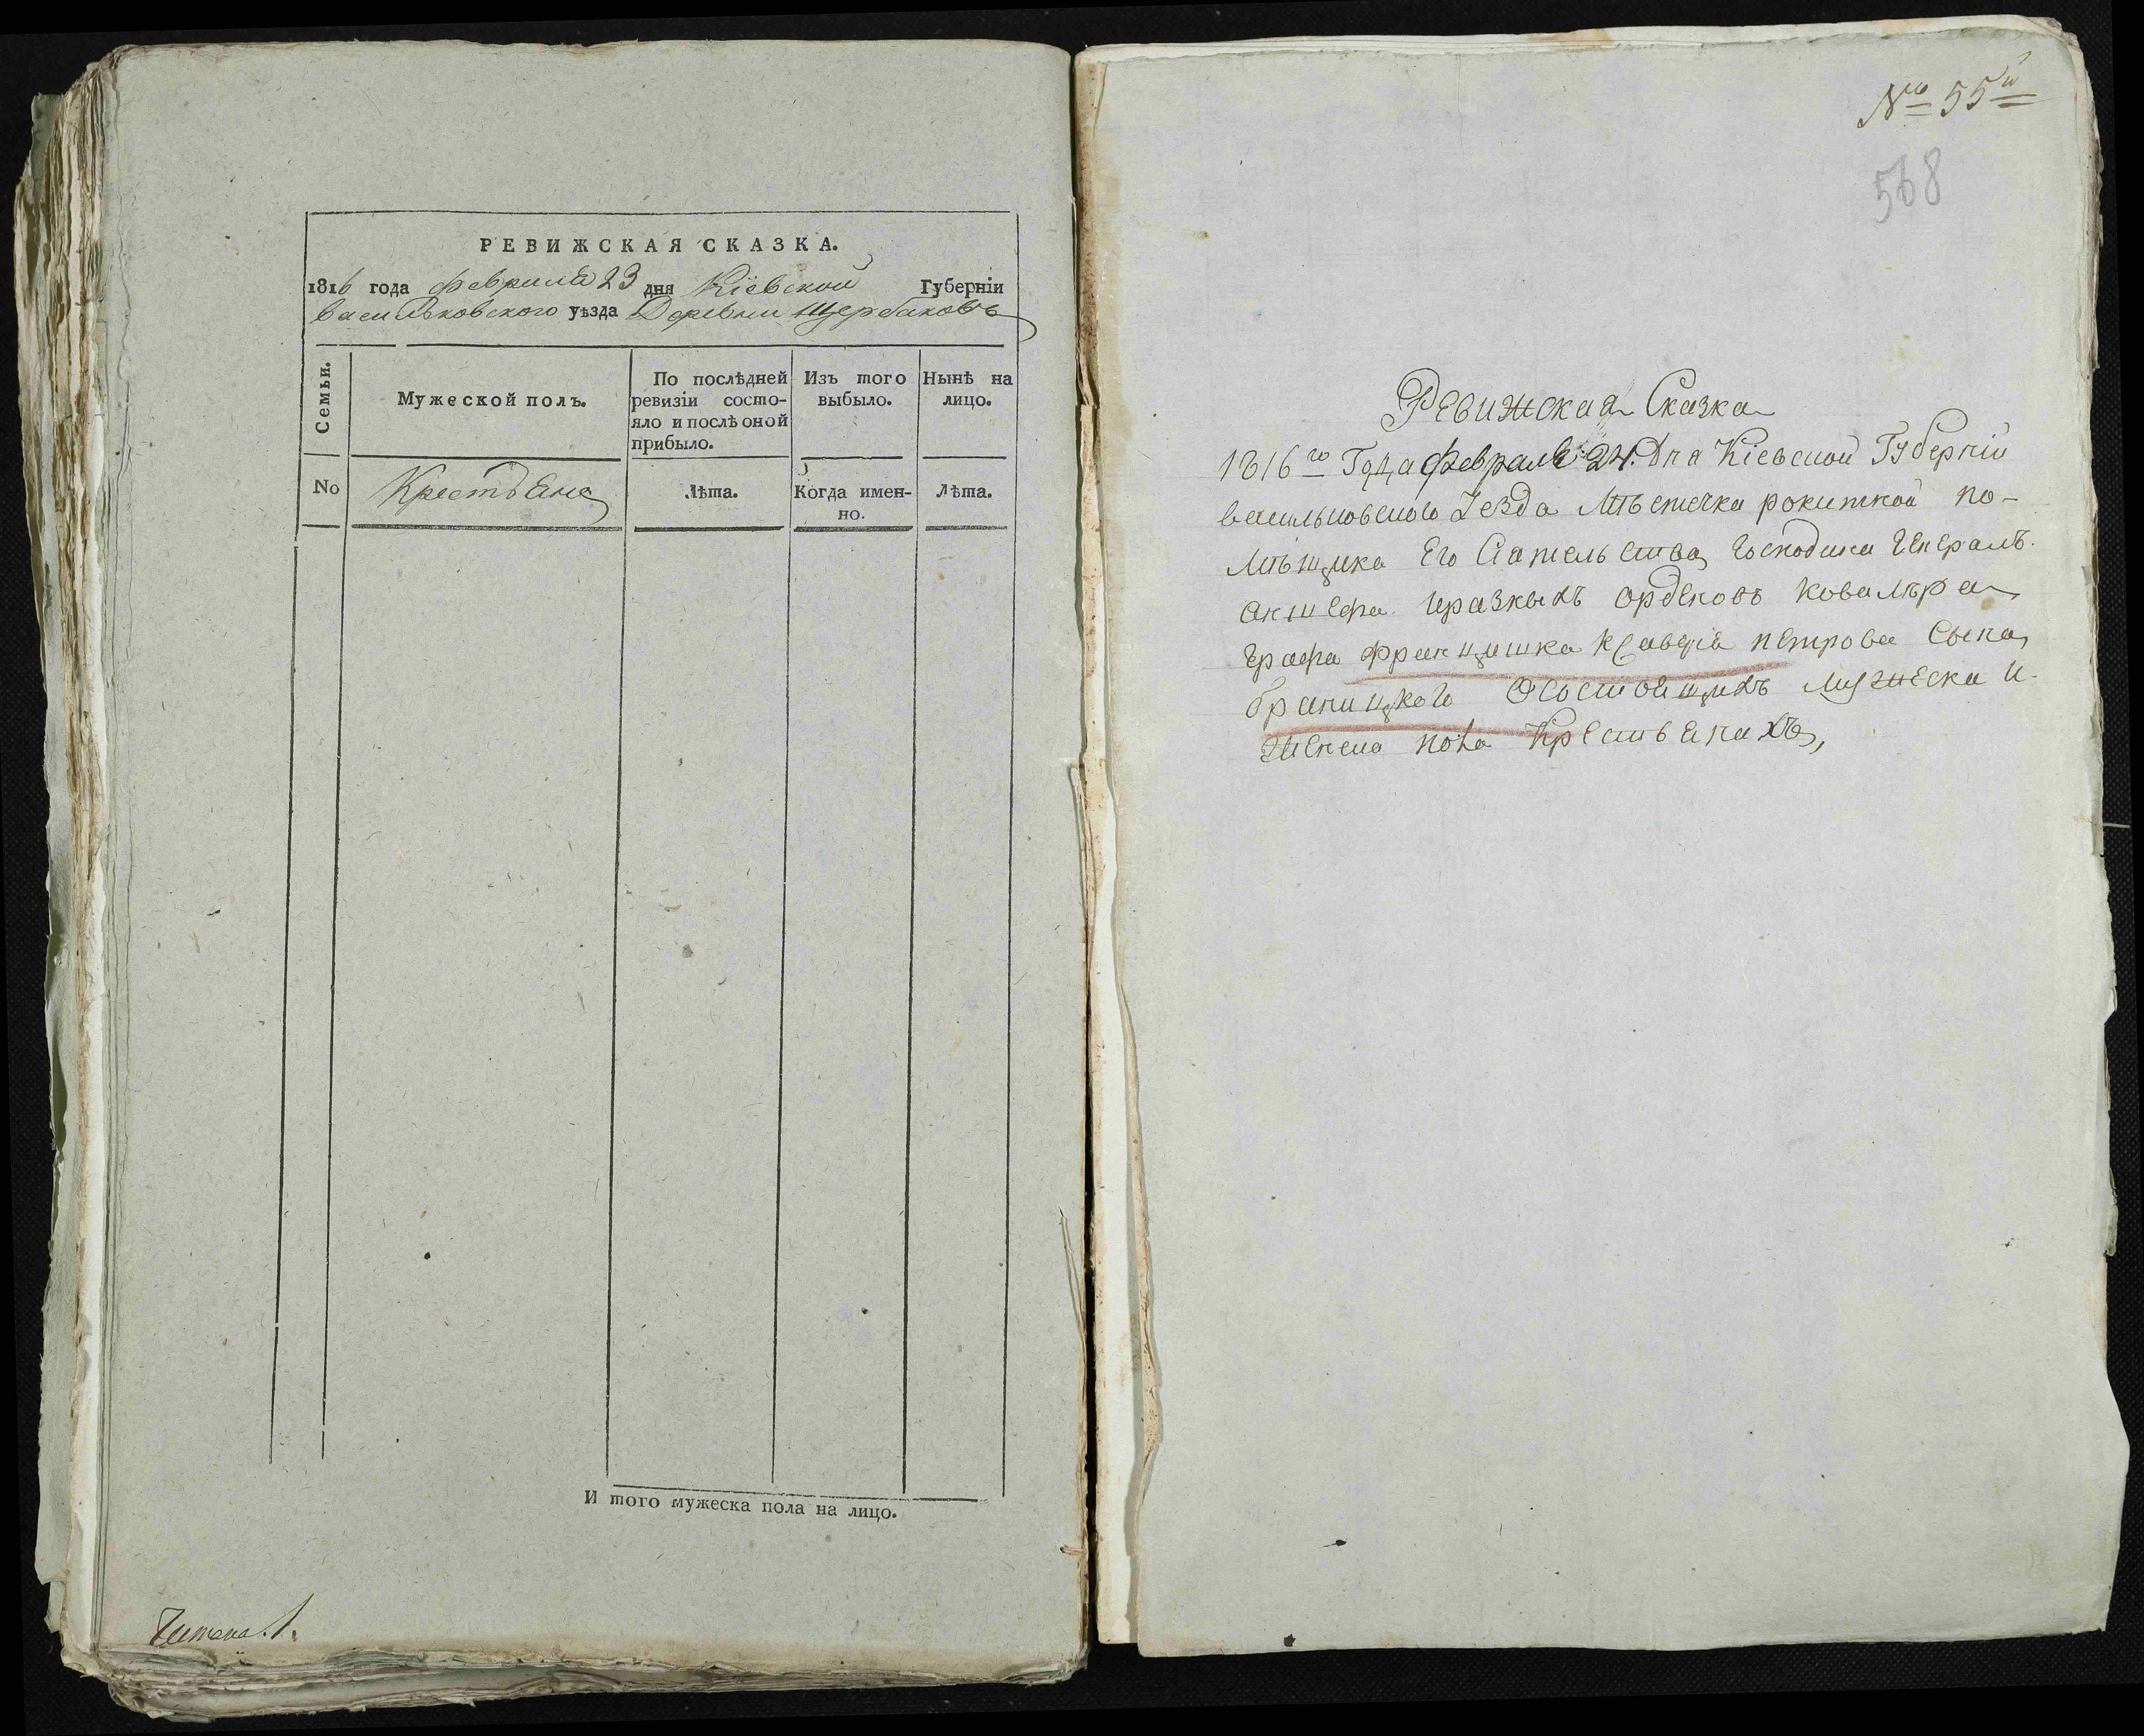 РЕВИЖСКАЯ СКАЗКА.
1816 года февраля 23 дня Кіевской Губерніи
васильковского уѣзда Деревни Щербаковъ
Семьи.
Мужеской полъ.
По послѣдней
ревизіи состо-
яло и послѣ оной
прибыло.
Изъ того
выбыло.
Нынѣ на
лицо.
No
Крестьяне
Лѣта.
Когда имен-
но.
Лѣта.
И того мужеска пола на лицо.
Читана
No 55й
568
Ревижская Сказка
1816го Года февраля 24. Дня Кіевской Губерніи
васильковского Уезда Мѣстечка рокитной по-
мѣщика Его Сіятельства Господина Генералъ
аншефа иразныхъ орденовъ ковалѣра
Графа Францишка Ксаверія петрова Сына
браницкого Осостоящихъ мужеска и
женска пола Крестьянахъ,